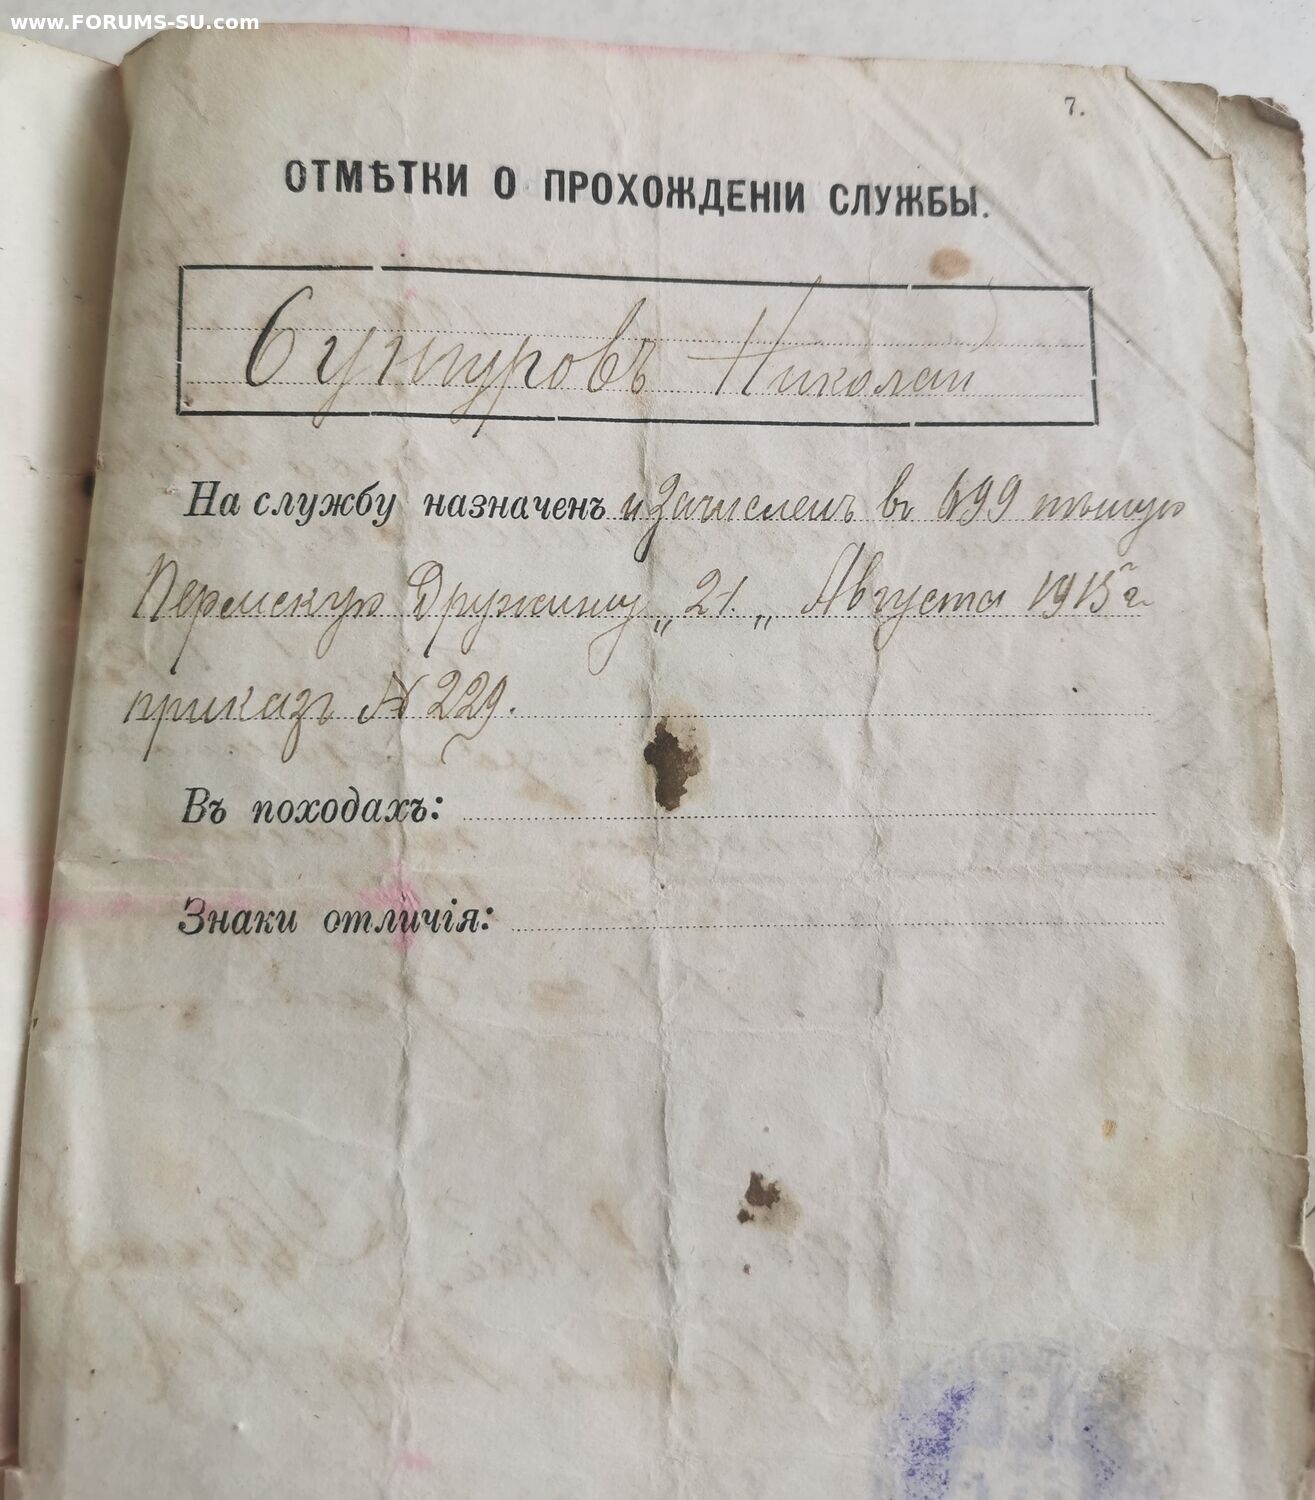 www.FORUMS-SU.com
7.
ОТМѢТКИ О ПРОХОЖДЕНІИ СЛУЖБЫ.
Сунгуровъ Николай
На службу назначенъ и зачисленъ въ 699 пѣшую
Пермскую Дружину „21„ Августа 1915 г.
приказъ № 229.
Въ походахъ:
Знаки отличія: